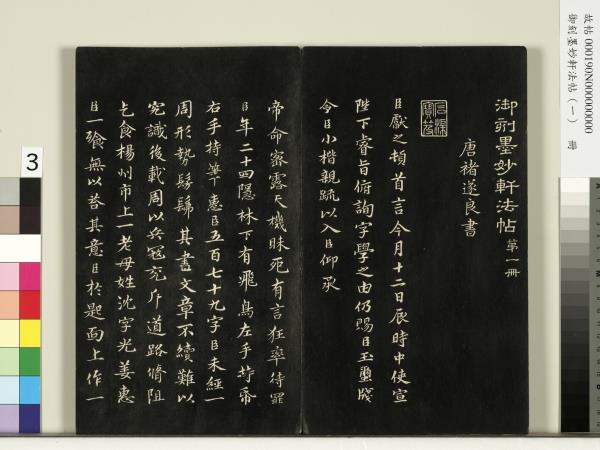 故帖 000190N000000000
御刻墨妙軒法帖（一） 冊
御刻墨妙軒法帖 第一冊
唐褚遂良書
臣獻之頓首言今月十二日辰時中使宣
陛下睿旨俯詢字學之由仍賜臣玉璽牋
令臣小楷親疏以入臣仰承
帝命密露天機昧死有言狂率待罪
臣年二十四隱林下有飛鳥左手持帋
右手持筆惠臣五百七十九字臣未經一
周形勢髣髴其書文章不續難以
究識後載周以兵寇充斥道路脩阻
乞食楊州市上一老母姓沈字光姜惠
臣一飡無以荅其意臣於匙面上作一
3